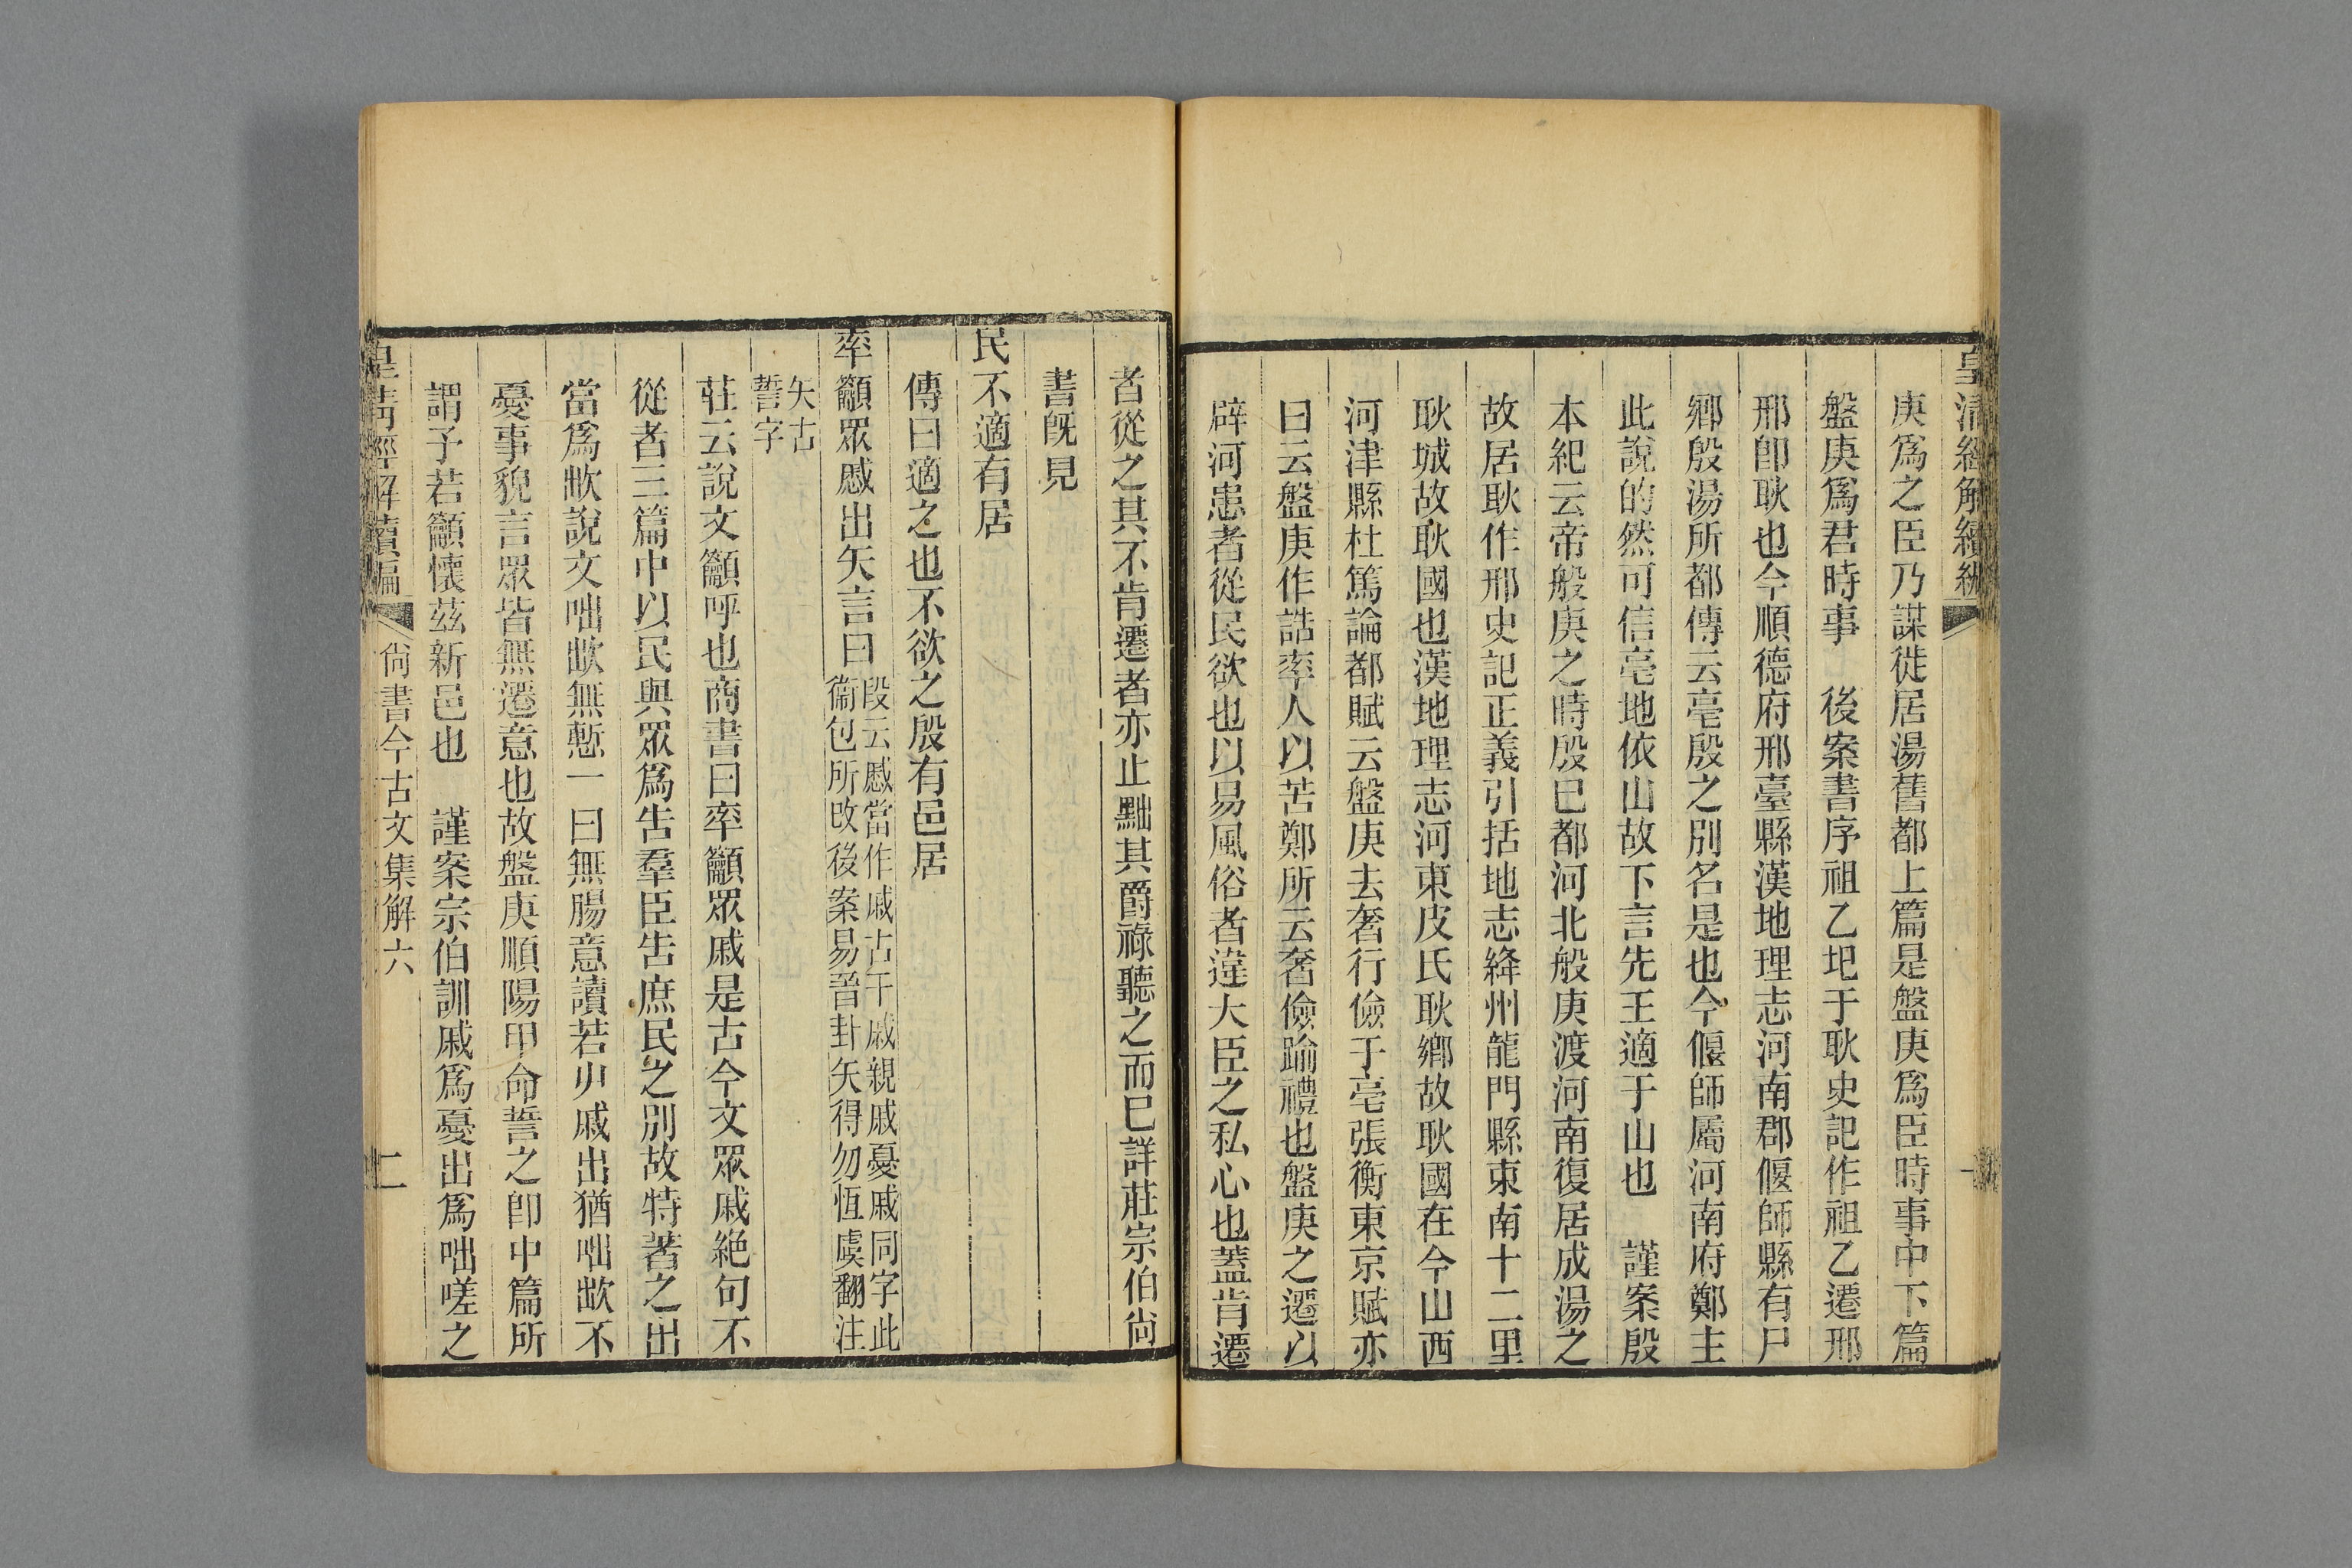 皇清經解續編
庚爲之臣乃謀徙居湯舊都上篇是盤庚爲臣時事中下篇
盤庚爲君時事　後案書序祖乙圯于耿史記作祖乙遷邢
邢卽耿也今順德府邢臺縣漢地理志河南郡偃師縣有尸
鄉殷湯所都傳云亳殷之別名是也今偃師屬河南府鄭主
此說的然可信亳地依山故下言先王適于山也　謹案殷
本紀云帝般庚之時殷巳都河北般庚渡河南復居成湯之
故居耿作邢史記正義引括地志絳州龍門縣東南十二里
耿城故耿國也漢地理志河東皮氏耿鄉故耿國在今山西
河津縣杜篤論都賦云盤庚去奢行儉于亳張衡東京賦亦
曰云盤庚作誥率人以苦鄭所云奢儉踰禮也盤庚之遷以
辟河患者從民欲也以易風俗者違大臣之私心也蓋肯遷
者從之其不肯遷者亦止黜其爵祿聽之而巳詳莊宗伯尙
書旣見
民不適有居
傳曰適之也不欲之殷有邑居
率籲眾慼出矢言曰
段云慼當作戚古干戚親戚憂戚同字此
衞包所改後案易晉卦矢得勿恆虞翻注
矢古
誓字
莊云說文籲呼也商書曰率籲眾戚是古今文眾戚絶句不
從者三篇中以民與眾爲吿羣臣吿庶民之別故特著之出
當爲欪說文咄欪無慙一曰無腸意讀若屮戚出猶咄欪不
憂事貌言眾皆無遷意也故盤庚順陽甲命誓之卽中篇所
謂予若籲懷茲新邑也　謹案宗伯訓戚爲憂出爲咄嗟之
皇清經解續編
尙書今古文集解六
二